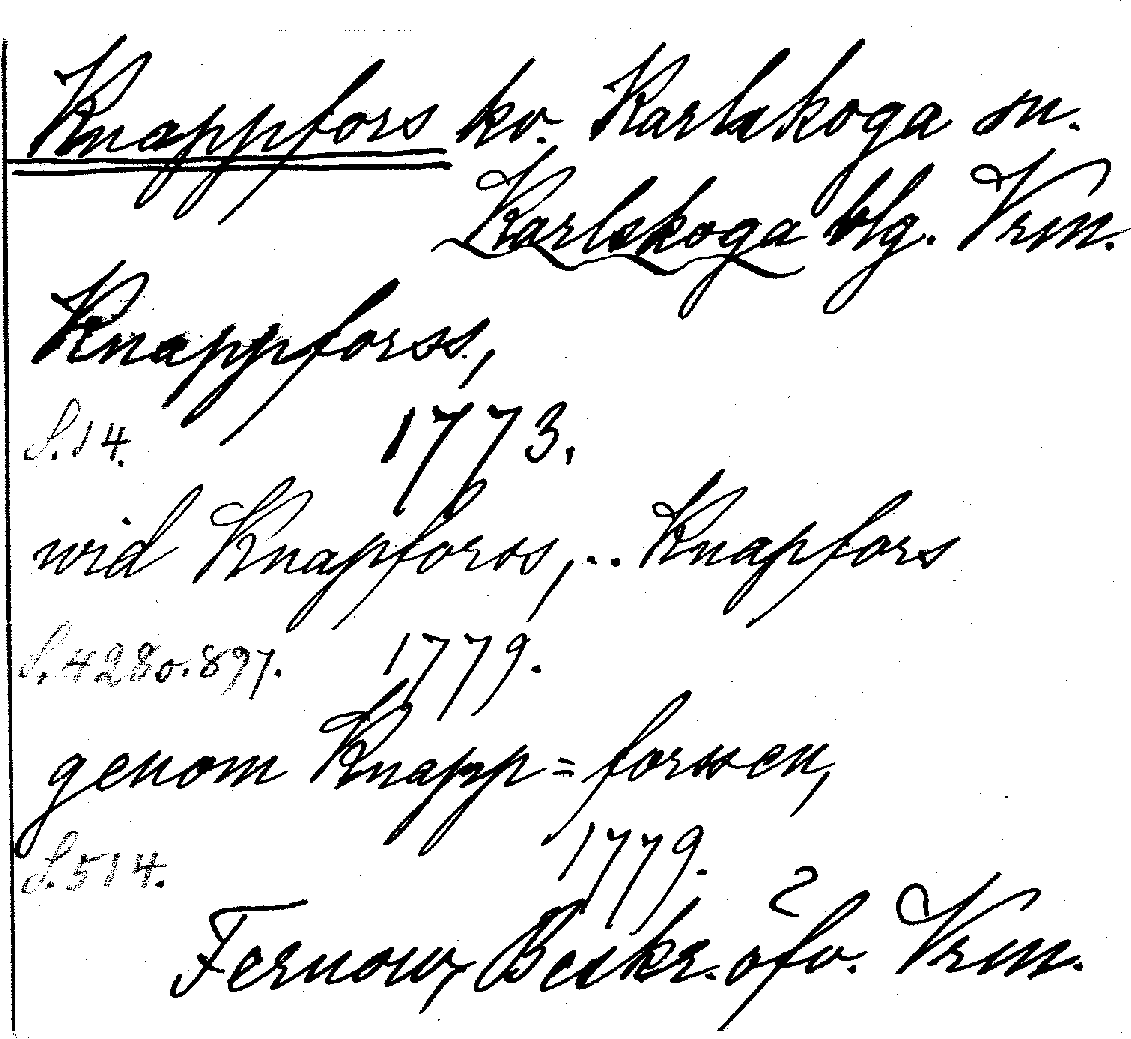 Knappfors kv. Karlskoga sn.
Karlskoga blg. Vrm.
Knappforss,
S.14. 1773.
wid Knapforss,.. Knapfors
S.428o.897. 1779.
genom Knapp=forssen,
S.514. 1779.
Fernow, Beskr. öfv. Vrm.